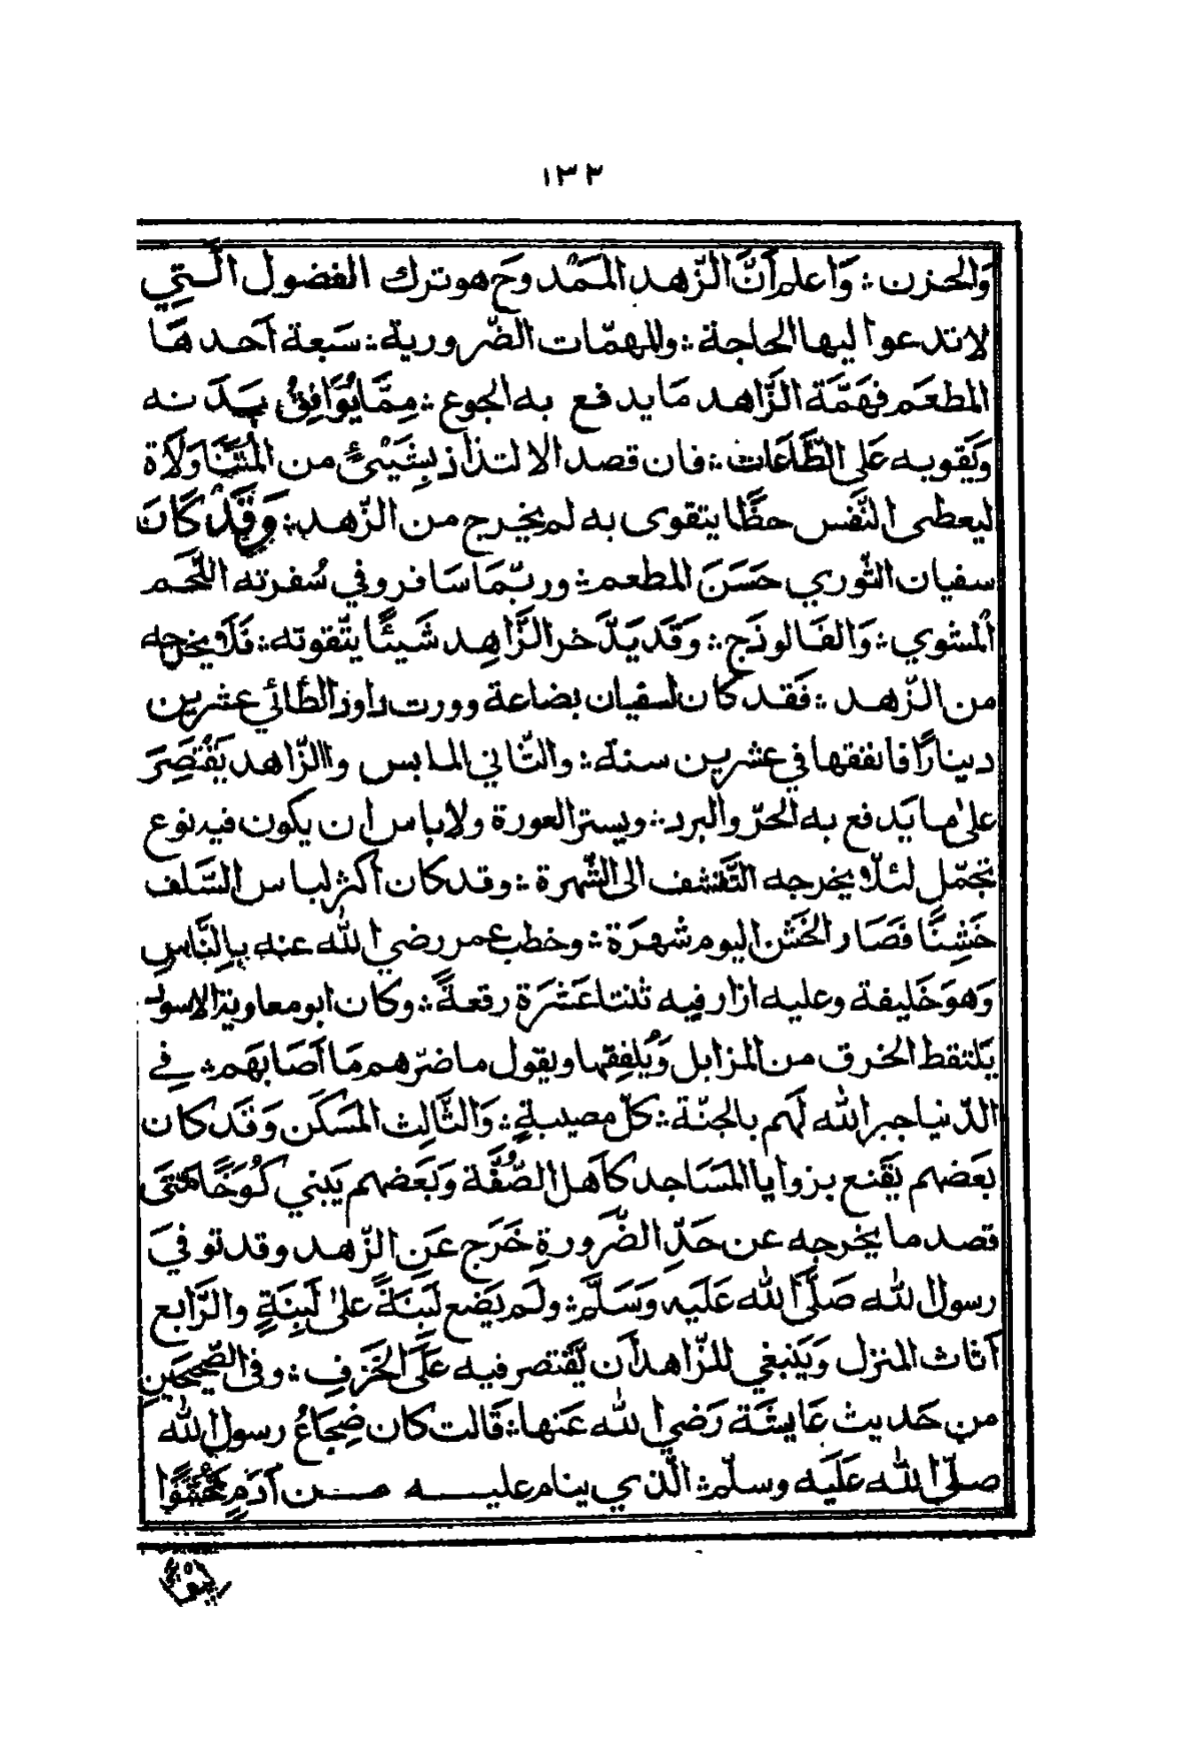 ١٣٢
وَالحزن ؞ وَّاعلم أنَّ الزّهد الممْدوحَ هو ترك الفضول الّتي
لا تدعوا ليها الحاجة ؞ والمهمّات الضّرورية ؞ سَبعة آحدهَا
المطعَم فهَمَّة الزَّاهد مَا يدفع به الجوع ؞ مِمَّا يُوَافِقُ بَدَنه
وَيَقويه عَلى الطَّاعَات ؞ فان قصد الالتذاذ بِشَيْئٍ من المُتنَاوَلَاة
ليعطى النَّفس حظًّا يتقوى به لم يخرج من الزّهد ؞ وَقَدْ كَانَ
سفيان الثّوري حَسَنَ المطعم ؞ وربّمَا سَافر وفي سُفرته اللَّحَم
المْشوي ؞ وَالفَالوذَج ؞ وَقَد يَدَّخر الزَّاهِد شَيئًا يتّقوته ؞ فَلَا يخرجه
من الزّهد ؞ فَقد كان لسفيان بضاعة وورث داوذ الطّائي عشرين
دينارًا فانفقها في عشرين سنة ؞ والثّاني الملابس والزّاهد يَقْتَصِرَ
على ما يَدفع به الحرّ والبرد ؞ ويستر العورة ولا باس ان يكون فيه نوع
تجمّل لئلّا يخرجه التَّقشف الى الشّهرة ؞ وقد كان أكثر لباس السَّلف
خَشِنًا فَصَار الخَشَن اليوم شهرَة ؞ وخطب عمر رضي الله عنه بِالنَّاسِ
وَهوَ خَليفة وعليه ازار فيه ثنتا عَشرَة رقعةً ؞ وكان ابو معاوية الاسود
يَلتقط الخرق من المزابل وَيُلفِقها ويقول ما ضرّهم مَا آصَابَهَم ؞ في
الدّنيا جبر الله لَهم بالجنّة ؞ كلّ مصيبةٍ ؞ وَالثَّالِث المَسكَن وَقَد كان
بَعضهم يَقنع بزوايا المسَاجد كآهل الصُّفَّة وَبَعضهم يَبني كُوخًا مَتَى
قصد ما يخرجه عن حَدِّ الضَّرورةِ خَرَج عَنِ الزّهد وقد توفيَ
رسول الله صَلَّى الله عَلَيه وَسَلَّم ؞ ولم يَضَع لَبِنَةً على لَبِنَةٍ والرَّابع
آثاث المنزل وَيَنبغي للزّاهد أن يَّقتصر فيه عَلَى الخَزَفِ ؞ وفى الصّحيحَينِ
من حَديث عَايشَة رَضي الله عَنها ؞ قَالت كان ضِجَاعُ رسول الله
صلّى الله عَلَيه وسلّم ؞ الّذي ينام عليه من آدَمٍ مَحْشُوًّا